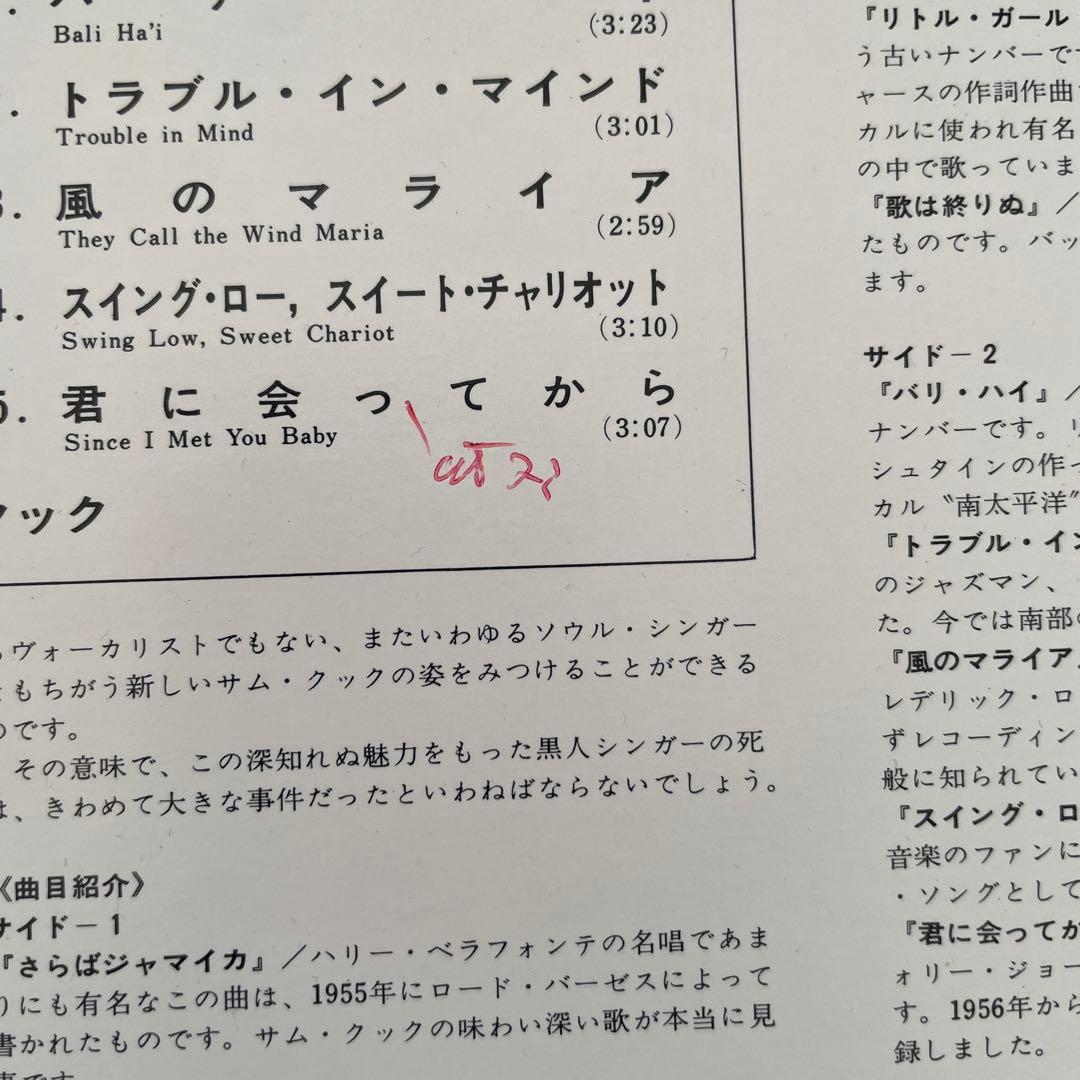 Bali Ha'i
(3:23)
トラブル・イン・マインド
Trouble in Mind
(3:01)
3. 風のマライア
They Call the Wind Maria
(2:59)
4. スイング・ロー, スイート・チャリオット
Swing Low, Sweet Chariot
(3:10)
5. 君に会ってから
Since I Met You Baby
(3:07)
クック
ヴォーカリストでもない、またいわゆるソウル・シンガー
もちがう新しいサム・クックの姿をみつけることができる
のです。
その意味で、この深知れぬ魅力をもった黒人シンガーの死
は、きわめて大きな事件だったといわねばならないでしょう。
《曲目紹介》
サイド－1
『さらばジャマイカ』／ハリー・ベラフォンテの名唱であま
りにも有名なこの曲は、1955年にロード・バーゼスによって
書かれたものです。サム・クックの味わい深い歌が本当に見
事です
『リトル・ガール
う古いナンバーで
ャースの作詞作曲
カルに使われ有名
の中で歌っていま
『歌は終りぬ』／
たものです。バッ
ます。
サイド－2
『バリ・ハイ』／
ナンバーです。リ
シュタインの作っ
カル〝南太平洋〟
『トラブル・イン
のジャズマン、
た。今では南部の
『風のマライア』
レデリック・ロ
ずレコーディン
般に知られてい
『スイング・ロ
音楽のファンに
・ソングとして
『君に会ってか
ォリー・ジョー
す。1956年から
録しました。